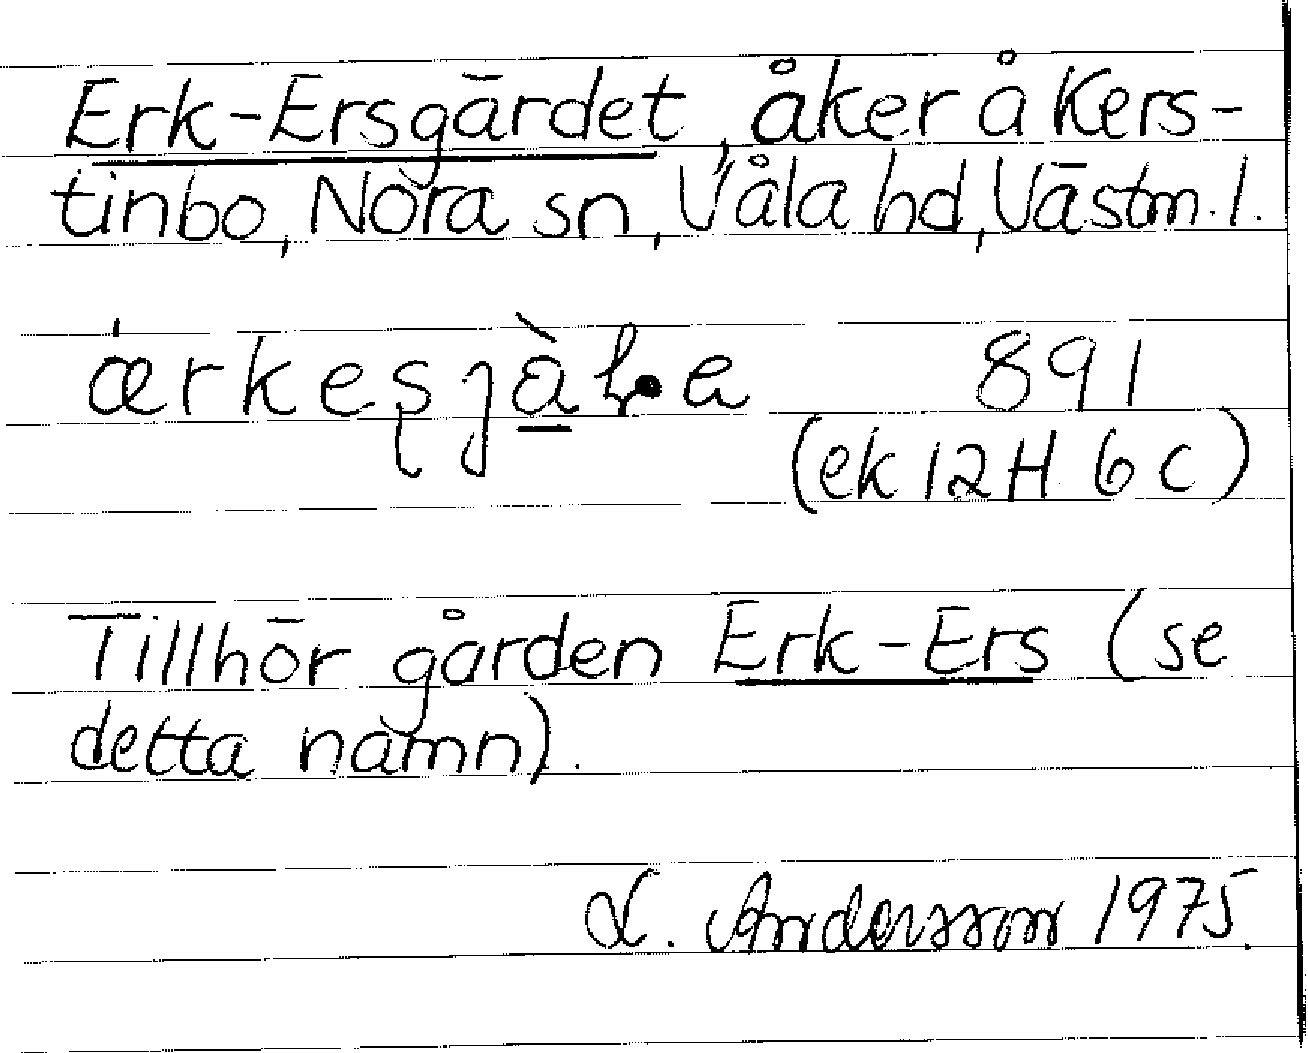 Erk-Ersgärdet, åker å Kers-
tinbo, Nora sn, Våla hd, Västm. l.
891
(ek 12H 6c)
Tillhör gården Erk-Ers (se
detta namn).
L. Andersson 1975.